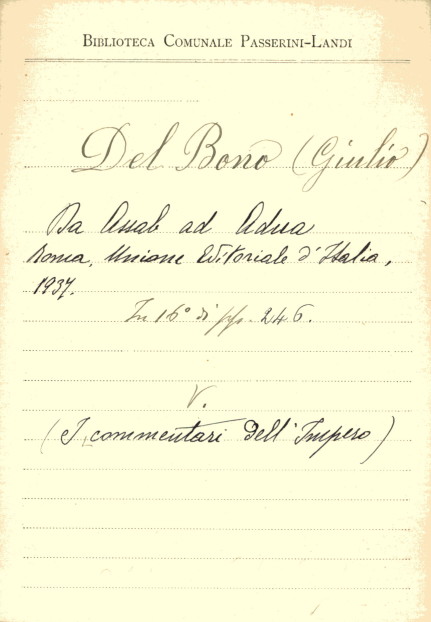 BIBLIOTECA COMUNALE PASSERINI-LANDI
Del Bono (Giulio)
Da Assab ad Adua
Roma, Unione Editoriale d'Italia,
1937.
In 16° di pp. 246.
V.
(I commentari dell'Impero)